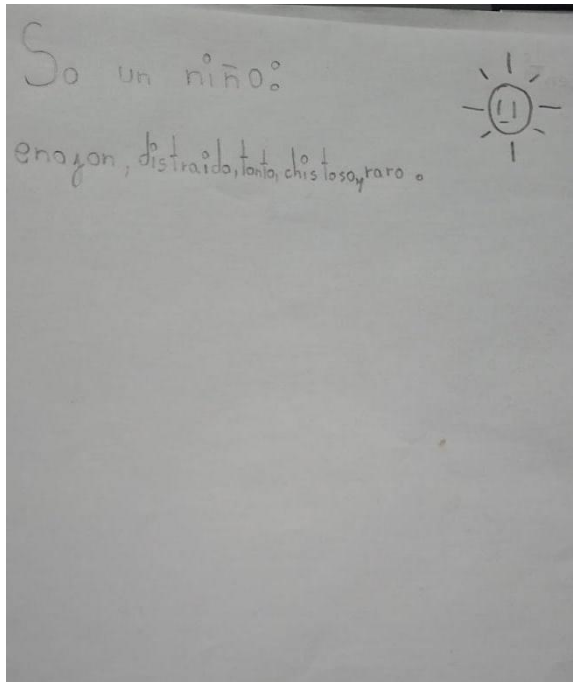 So un niño:
enojon, distraido, tonto, chistoso y raro.